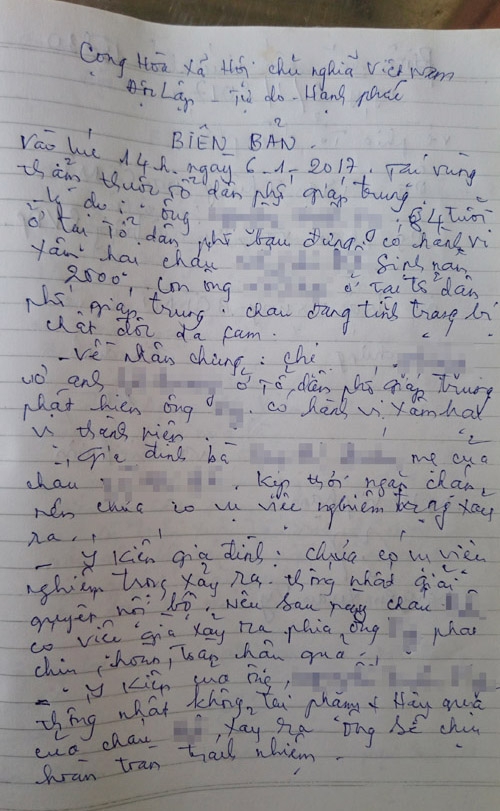 Cộng Hòa Xã Hội chủ nghĩa Việt Nam
Độc Lập - Tự do - Hạnh phúc
BIÊN BẢN.
Vào lúc 14h. ngày 6-1-2017. Tại vùng
thẩm thuộc Tổ dân phố giáp trung.
Lý do: ông , 84 tuổi
ở tại Tổ dân phố Bàu Đung có hành vi
xâm hại cháu Sinh năm
2000, con ông ở tại tổ dân
phố giáp trung. cháu đang tình trạng bị
chất độc da cam.
- Về nhân chứng: chị
vợ anh ở tổ dân phố giáp trung
phát hiện ông có hành vi xâm hại
vị thành niên.
- gia đình bà mẹ của
cháu kịp thời ngăn chặn
nên chưa có vụ việc nghiêm trọng xảy
ra.
- Ý kiến gia đình: chưa có vụ việc
nghiêm trọng xảy ra thống nhất giải
quyết nội bộ. nếu sau này cháu
có việc gì xảy ra phía ông phải
chịu hoàn toàn hậu quả.
- Ý kiến của ông,
thống nhất không tái phạm & Hậu quả
của cháu xảy ra ông sẽ chịu
hoàn toàn trách nhiệm.